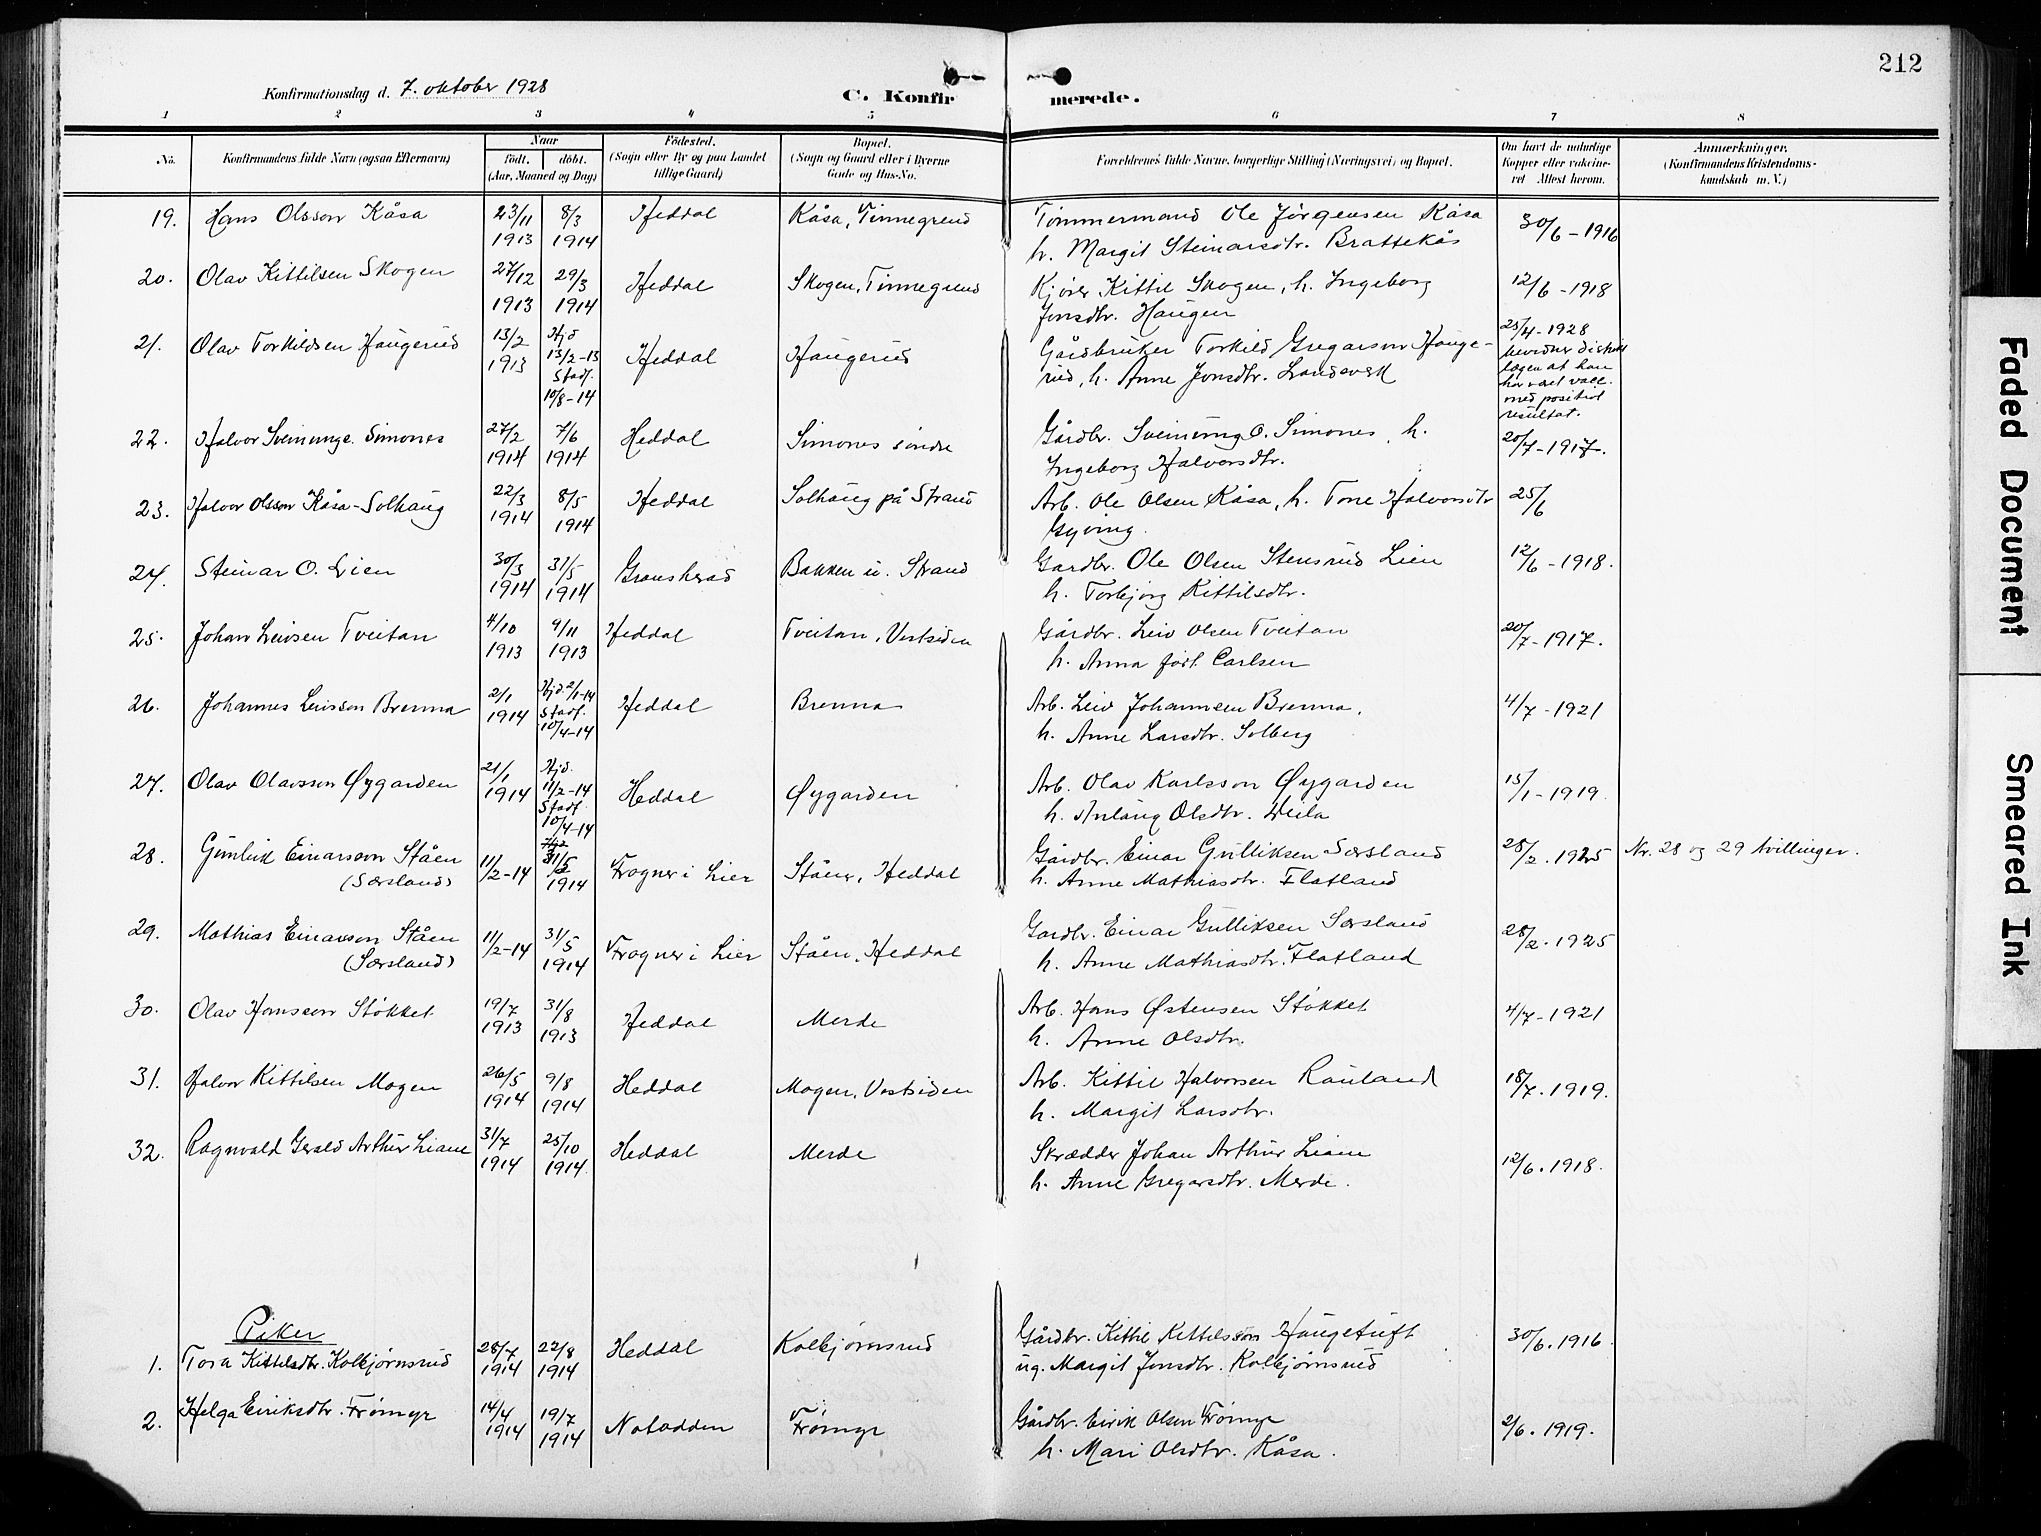 212
Konfirmationsdag d. 7. oktober 1928
C. Konfirmerede.
1 2 3 4 5 6 7 8
No. Konfirmandens fulde Navn (ogsaa Efternavn) Naar födt. döbt. (Aar, Maaned og Dag) Födested. (Sogn eller By og paa Landet tillige Gaard) Bopæl. (Sogn og Gaard eller i Byerne Gade og Hus-No. Forældrenes fulde Navne, borgerlige Stilling (Næringsvei) og Bopæl. Om havt de naturlige Kopper eller vaccineret Attest herom. Anmærkninger. (Konfirmandens Kristendomskundskab m. V.)
19. Hans Olsson Kåsa 23/11 1913 8/3 1914 Heddal Kåsa, Tinnegrend Tømmermand Ole Jørgensen Kåsa 30/6 - 1916
h. Margit Steinarsdtr. Brattekås
20. Olav Kittilsen Skogen 27/12 1913 29/3 1914 Heddal Skogen, Tinnegrend Kjører Kittil Skogen, h. Ingeborg 12/6 - 1918
Jonsdtr. Haugen
21. Olav Torkildsen Haugerud 13/2 1913 Hjd 13/2-13 Stadf. 10/8-14 Heddal Haugerud Gårdbruker Torkild Gregarson Hauge-
rud, h. Anne Jonsdtr. Landsverk
25/4 - 1928
bevidner distrikt
lægen at han
har vært vacc.
med positivt
resultat.
22. Halvor Sveinunge. Simones 27/2 1914 7/6 1914 Heddal Simones søndre Gårdbr. Sveinung O. Simones, h. 20/7 - 1917.
Ingeborg Halvorsdtr.
23. Halvor Olsson Kåsa - Solhaug 22/3 1914 8/5 1914 Heddal Solhaug på Strand Arb. Ole Olsen Kåsa, h. Tone Halvorsdtr 25/6
Gyving.
24. Steinar O. Lien 30/3 1914 31/5 1914 Gransherad Bakken u. Strand Gardbr. Ole Olsen Stensrud Lien 12/6 - 1918.
h. Torbjørg Kittilsdtr.
25. Johan Leivsen Tveitan 4/10 1913 9/11 1913 Heddal Tveitan, Vestsiden Gårdbr. Leiv Olsen Tveitan 20/7 - 1917.
h. Anna født Carlsen
26. Johannes Leivsson Brenna 2/1 1914 Hjd. 2/1-14 Stadf. 10/4-14 Heddal Brenna Arb. Leiv Johannsen Brenna, 4/7 - 1921
h. Anne Larsdtr. Solberg
27. Olav Olavsson Øygarden 21/1 1914 Hjd. 11/2-14 Stadf. 10/4-14 Heddal Øygarden Arb. Olav Karlsson Øygarden 15/1 - 1919.
h. Aslaug Olsdtr.
28. Gunleik Einarsson Ståen 11/2-14 31/5 1914 Frogner i Lier Ståen, Heddal Gårdbr. Einar Gulliksen Særsland 28/2 . 1925 Nr. 28 og 29 tvillinger.
(Særsland) h. Anne Mathiasdtr. Flatland
29. Mathias Einarson Ståen 11/2-14 31/5 1914 Frogner i Lier Ståen, Heddal Gardbr. Einar Gulliksen Særsland 28/2 . 1925
(Særsland) h. Anne Mathiasdtr. Flatland
30. Olav Hansson Støkket 19/7 1913 31/8 1913 Heddal Merde Arb. Hans Østensen Støkket 4/7 - 1921
h. Anne Olsdtr.
31. Halvor Kittilsen Mogen 26/5 1914 9/8 1914 Heddal Mogen, Vestsiden Arb. Kittil Halvorsen Rauland 18/7 . 1919.
h. Margit Larsdtr.
32. Ragnvald Gerald Arthur Liane 31/7 1914 25/10 1914 Heddal Merde Skrædder Johan Arthur Liane 12/6 . 1918.
h. Anne Gregarsdtr. Merde.
Piker
1. Tora Kittelsdtr. Kolbjørnsrud 28/7 1914 22/8 1914 Heddal Kolbjørnsrud Gårdbr. Kittil Kittelsson Haugetuft 30/6 . 1916.
ug. Margit Jonsdtr. Kolbjørnsrud
2. Helga Eiriksdtr. Frømyr 14/4 1914 19/7 1914 Notodden Frømyr Gårdbr. Eirik Olsen Frømyr 2/6 . 1919.
h. Mari Olsdtr. Kåsa.
Faded Document
Smeared Ink